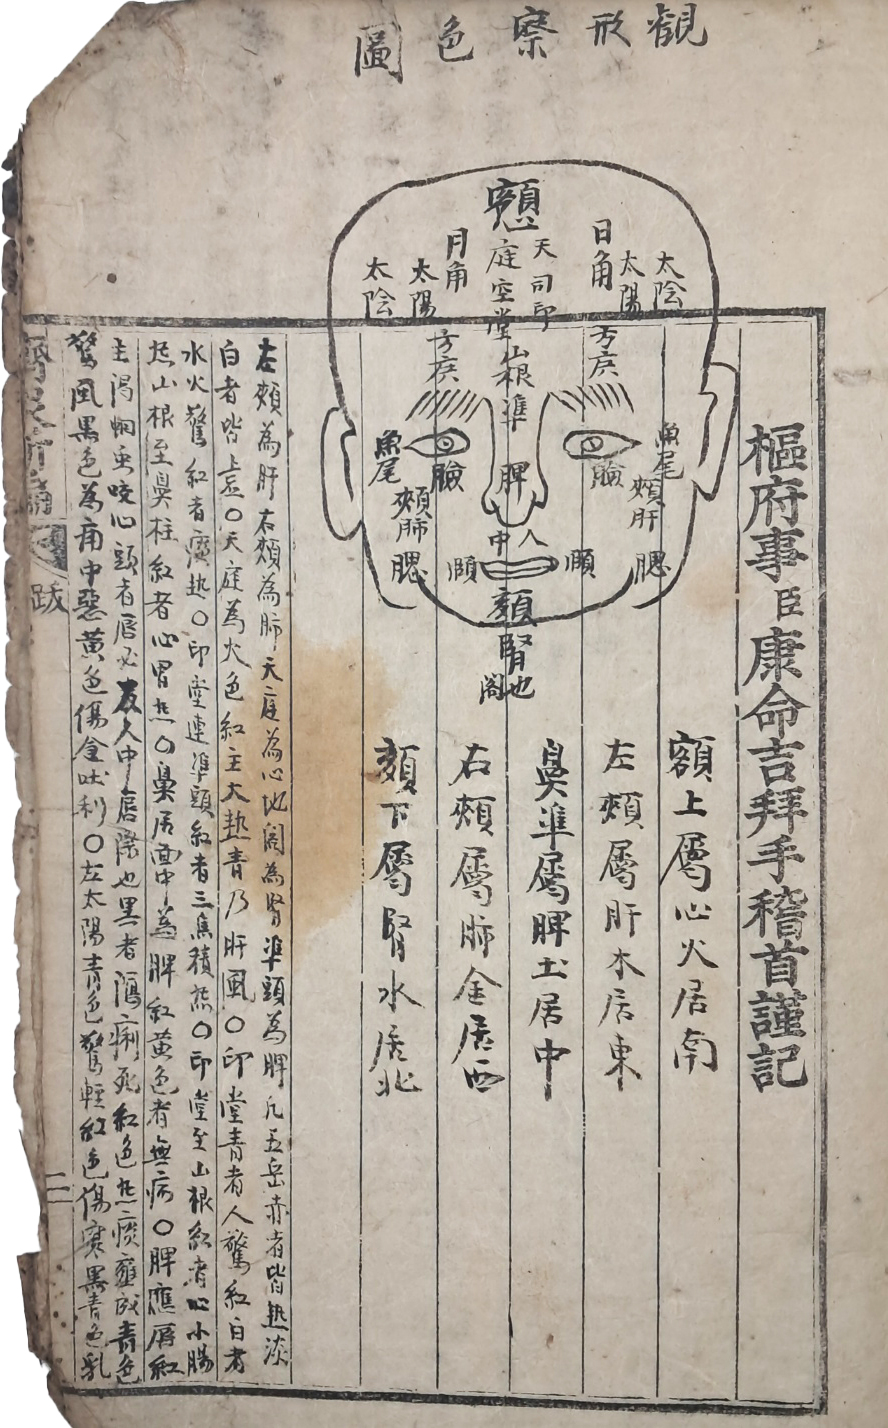 觀形察色圖
額
天庭
司空
印堂
山根
準
脾
人中
日角
月角
太陽
太陰
太陽
太陰
方廣
方廣
魚尾
魚尾
臉
臉
頰肝
頰肺
腮
腮
頤
頤
頦
腎也
閣
樞府事臣康命吉拜手稽首謹記
額上屬心火居南
左頰屬肝木居東
鼻準屬脾土居中
右頰屬肺金居西
頦下屬腎水居北
左頰為肝右頰為肺天庭為心地閣為腎準頭為脾凡五岳赤者皆热淡
白者皆虛〇天庭為火色紅主大热青乃肝風〇印堂青者人驚紅白者
水火驚紅者痰热〇印堂連準頭紅者三焦積热〇印堂至山根紅者心小腸
热山根至鼻柱紅者心胃热〇鼻居面中為脾紅黄色者無病〇脾應唇紅
主渴悯虫咬心頭者唇必反人中唇際也黑者瀉痢死紅色热痰壅成青色
驚風黑色為痛中惡黄色傷食吐利〇左太陽青色驚輕紅色傷寒黑青色乳
濟眾新編 跋 二